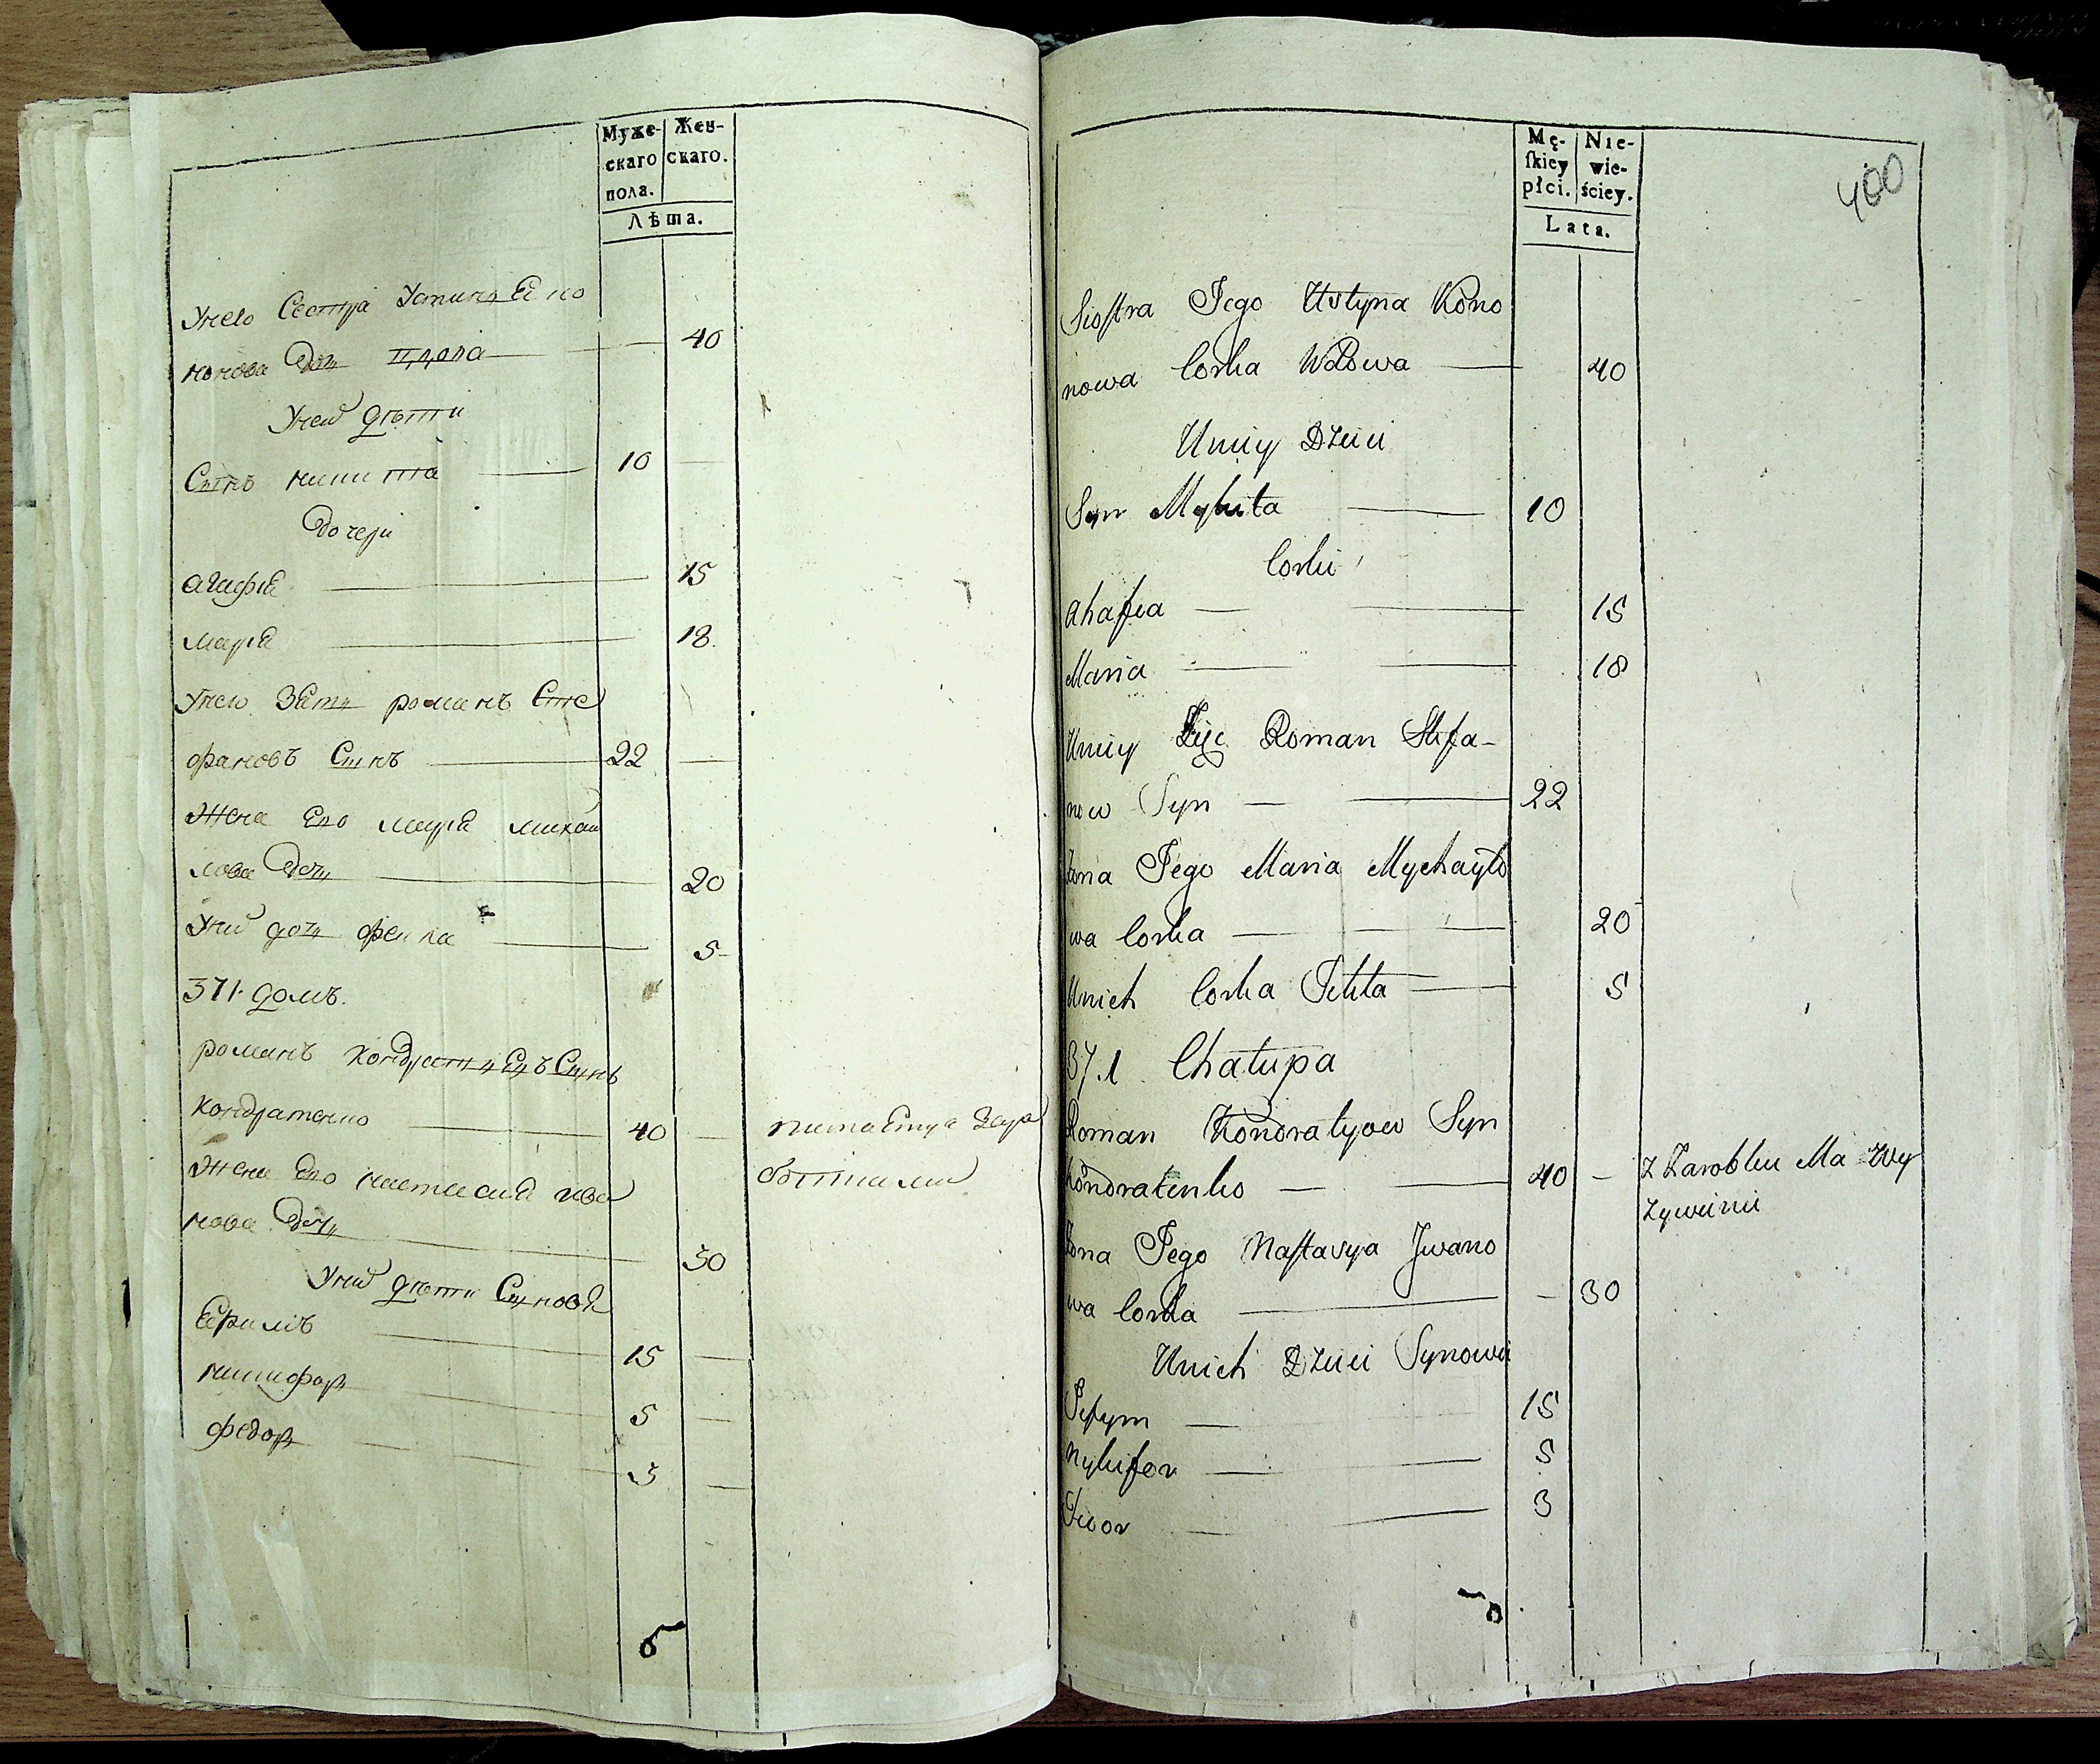 Муже-
скаго
пола.
Жен-
скаго.
Лѣта.
Унего Сестра Устинья Коно
нова дочь вдова 40
Уней дѣти
Сынъ никита 10
дочери
агафія 15
марія 18
Унею Зять романъ Сте
фановъ Сынъ 22
Жена Его марія михаи
лова дочь 20
Уних дочь фекла 5
371 домъ.
романъ кондратьевъ Сынъ
кондратенко 40 питается зара
ботками
Жена Его настасия ива
нова дочь 30
Уних дѣти Сыновя
Ефимъ 15
никифор 5
федор 3
Mę-
ſkiey
płci.
Nie-
wie-
ściey.
Lata.
400
Siostra Jego Ustyna Kono
nowa Corka Wdowa 40
Uniey Dzieci
Syn Mykita 10
Corki
Ahafia 15
Maria 18
Uniey Zięć Roman Stefa-
now Syn 22
Zona Jego Maria Mychayło
wa Corka 20
Unich Corka Fekła 5
371 Chałupa
Roman Kondratyow Syn
Kondratenko 40 Z Zarobku Ma Wy
zywienie
Zona Jego Nastasya Jwano
wa Corka 30
Unich Dzieci Synowie
Jefym 15
Nykifor 5
Fedor 3